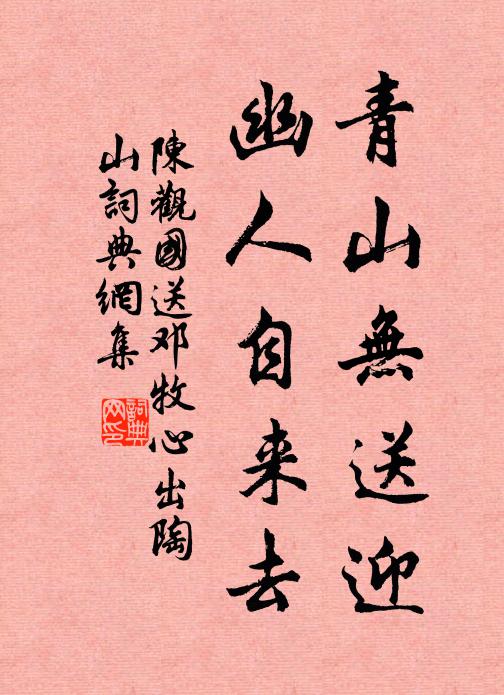 青山無送迎
幽人自来去
陳觀國送邓牧心出陶
山詞典網集
詞典
网印